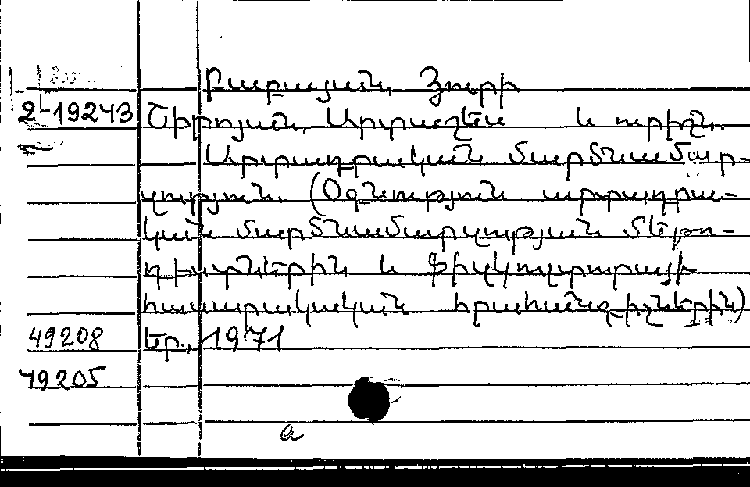 Բաբայան Յուրի
2-19243 Շիրոյան Արտաշես և ուրիշն.
Արտադրական մարմնամար-
զություն. (Օգնություն արտադրա-
կան մարմնամարզության մեթո-
դիստներին և ֆիզկուլտուրայի
հասարակական հրահանգիչներին)
49208 Եր., 1971
79205
a